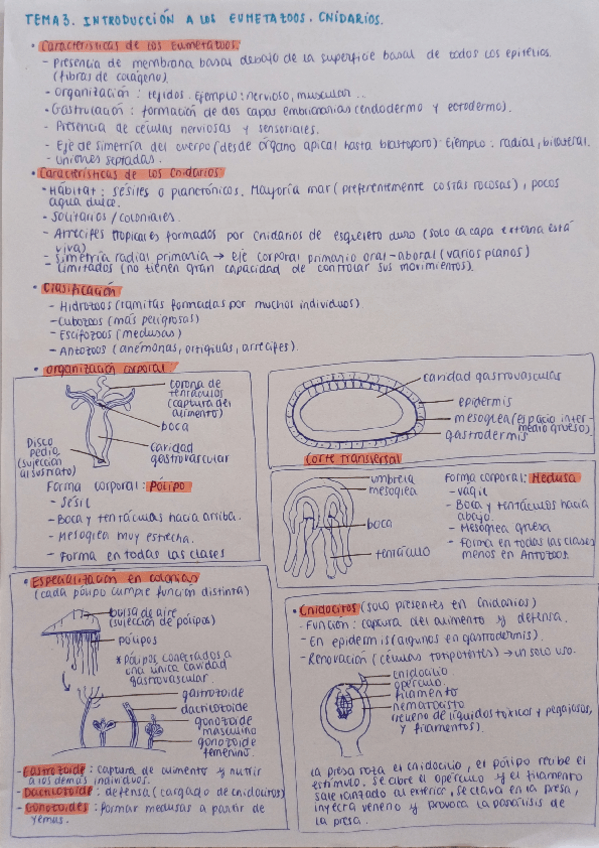 TEMA 3. INTRODUCCIÓN A LOS EUMETAZOOS. CNIDARIOS.
• Características de los Eumetazoos.
- Presencia de membrana basal debajo de la superficie basal de todos los epitelios.
(fibras de colágeno).
- Organización: tejidos. Ejemplo: nervioso, muscular...
- Gastrulación: formación de dos capas embrionarias (endodermo y ectodermo).
- Presencia de células nerviosas y sensoriales.
- Eje de simetría del cuerpo (desde órgano apical hasta blastoporo). Ejemplo: radial, bilateral.
- Uniones septadas.
• Características de los Cnidarios
- Hábitat: sésiles o planctónicos. Mayoría mar (preferentemente costas rocosas), pocos
agua dulce.
- Solitarios / coloniales.
- Arrecifes tropicales formados por cnidarios de esqueleto duro (solo la capa externa está
viva)
- Simetría radial primaria → eje corporal primario oral-aboral (varios planos)
- Limitados (no tienen gran capacidad de controlar sus movimientos).
• Clasificación
- Hidrozoos (ramitas formadas por muchos individuos)
- Cubozoos (más peligrosas)
- Escifozoos (medusas)
- Antozoos (anémonas, ortiguillas, arrecifes).
• Organización corporal
corona de
tentáculos
(captura del
alimento)
boca
cavidad
gastrovascular
Disco
pedio
(sujeción
al sustrato)
Forma corporal: Pólipo
- Sésil
- Boca y tentáculos hacia arriba.
- Mesoglea muy estrecha.
- Forma en todas las clases
cavidad gastrovascular
epidermis
mesoglea (espacio inter-
medio grueso)
gastrodermis
Corte transversal
umbrela
mesoglea
boca
tentáculo
Forma corporal: Medusa
- vágil
- Boca y tentáculos hacia
abajo.
- Mesoglea gruesa
- Forma en todas las clases
menos en Antozoos.
• Especialización en colonias
(cada pólipo cumple función distinta)
bolsa de aire
(sujeción de pólipos)
pólipos
* pólipos conectados a
una única cavidad
gastrovascular.
gastrozoide
dactilozoide
gonozoide
masculino
gonozoide
femenino.
- Gastrozoide: captura de alimento y nutrir
a los demás individuos.
- Dactilozoide: defensa (cargado de cnidocitos)
- Gonozoides: formar medusas a partir de
yemas.
• Cnidocitos (solo presentes en Cnidarios)
- Función: captura del alimento y defensa.
- En epidermis (algunos en gastrodermis).
- Renovación (células totipotentes) → un solo uso.
cnidocilio
opérculo
filamento
nematocisto
(relleno de líquidos tóxicos y pegajosos,
y filamentos).
La presa roza el cnidocilio, el pólipo recibe el
estímulo, se abre el opérculo y el filamento
sale lanzado al exterior, se clava en la presa,
inyecta veneno y provoca la parálisis de
la presa.